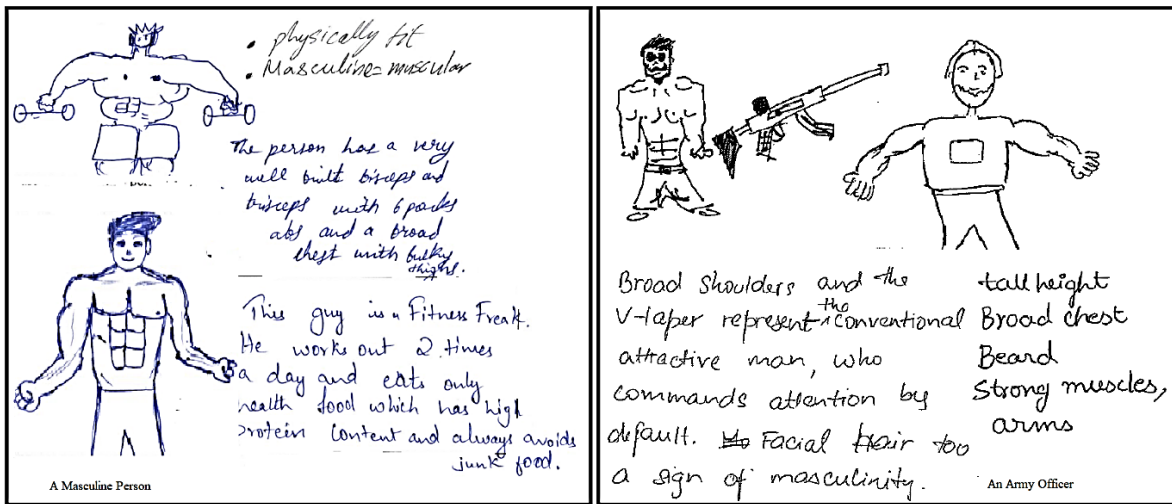 • physically fit
• Masculine = muscular
The person has a very
well built bisceps and
trisceps with 6 packs
abs and a broad
chest with bulky
thighs.
This guy is a Fitness Freak.
He works out 2 times
a day and eats only
health food which has high
protein content and always avoids
junk food.
A Masculine Person
Broad shoulders and the
V-taper represent the conventional
attractive man, who
commands attention by
default. Facial hair too
a sign of masculinity.
tall height
Broad chest
Beard
Strong muscles,
arms
An Army Officer